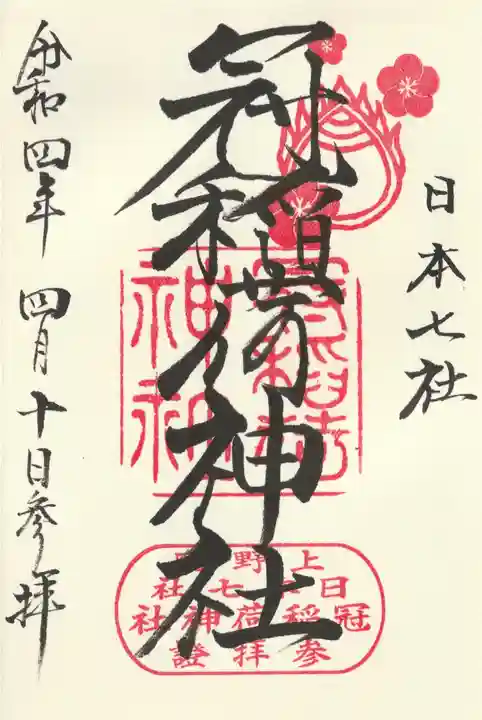 日本七社
冠稲荷神社
令和四年 四月十日参拝
上野
日本七社
冠稲荷神社
参拝證